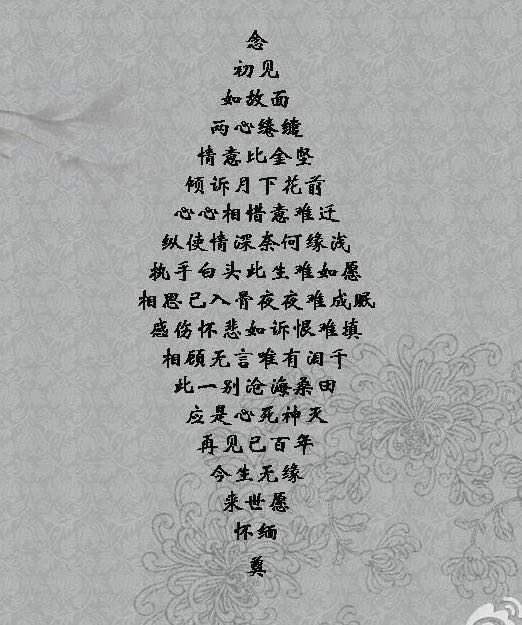 念
初见
如故面
两心缱绻
情意比金坚
倾诉月下花前
心心相惜意难迁
纵使情深奈何缘浅
执手白头此生难如愿
相思已入骨夜夜难成眠
感伤怀悲如诉恨难填
相顾无言唯有泪千
此一别沧海桑田
应是心死神灭
再见已百年
今生无缘
来世愿
怀缅
奠